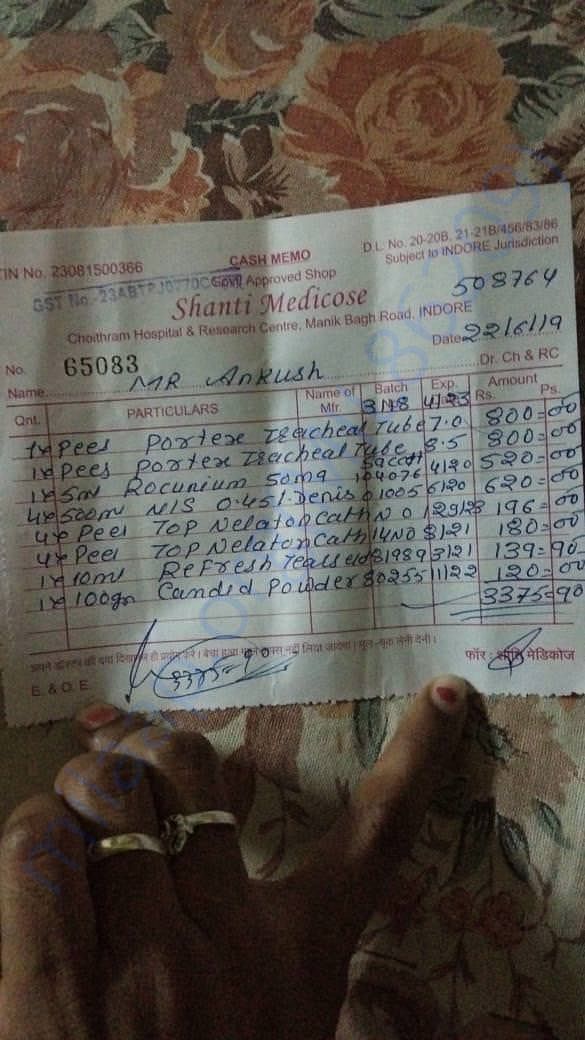 TIN No. 23081500366
CASH MEMO
D.L. No. 20-20B, 21-21B/456/83/86
Govt. Approved Shop
Subject to INDORE Jurisdiction
GST No.-23ABTPJ0770C
Shanti Medicose
508764
Choithram Hospital & Research Centre, Manik Bagh Road, INDORE
No. 65083
Date 22/6/19
Name MR Ankush Dr. Ch & RC
Qnt. PARTICULARS Name of Mfr. Batch Exp. Amount Rs. Ps.
3118 4/23
1x Pees Portex Tracheal Tube 7.0 800=00
1x Pees Portex Tracheal Tube 8.5 800=00
1x 5ml Rocunium 50mg 104076 4/20 520=00
4x 500ml N/S 0.45% Denis 01005 6/20 620=00
4x Peel TOP Nelaton Cath NO 12 196=00
4x Peel TOP Nelaton Cath 14NO 8/21 180=00
1x 10ml Refresh Tears 81989 3/21 139=90
1x 100gm Candid Powder 80255 11/22 120=00
3375=90
3375=90
फॉर : शांति मेडिकोज
E. & O. E.